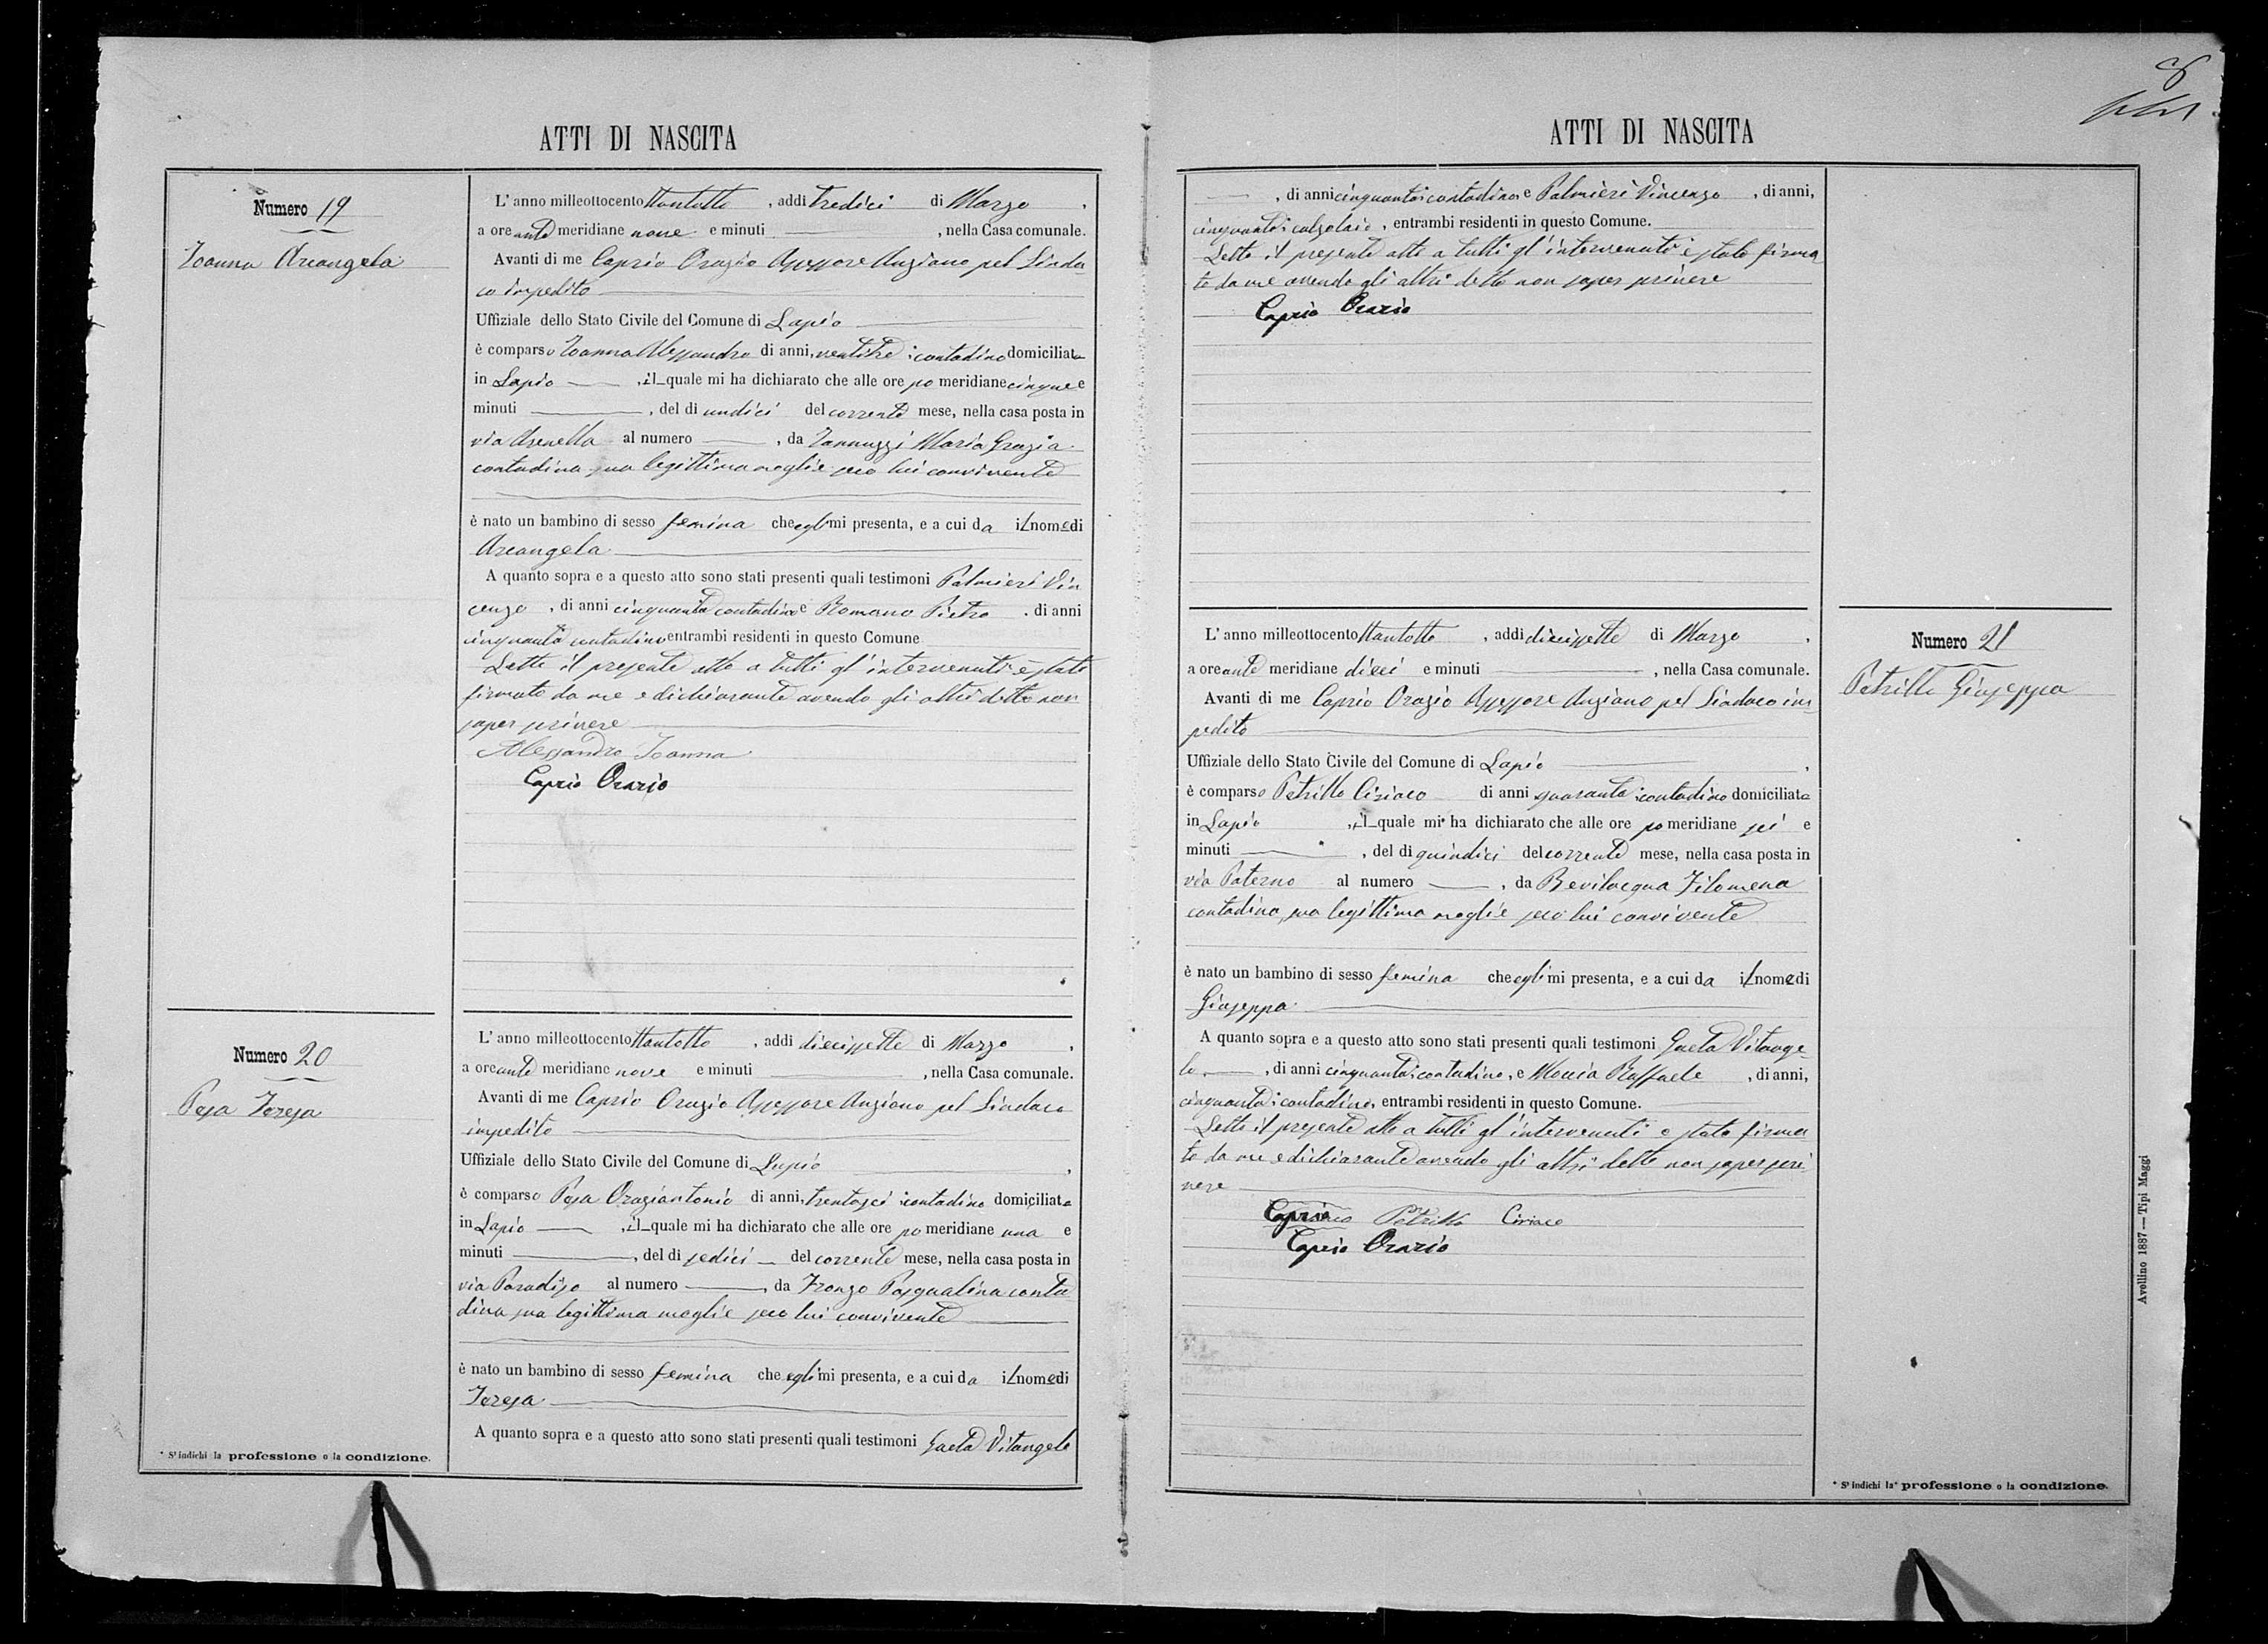 ATTI DI NASCITA
Numero 19
Ioanna Arcangela
L' anno milleottocento ttantotto , addì tredici di Marzo ,
a ore ante meridiane nove e minuti , nella Casa comunale.
Avanti di me Caprio Orazio Assessore Anziano pel Sinda-
co impedito
Uffiziale dello Stato Civile del Comune di Lapio
è comparso Ioanna Alessandro di anni, ventitre contadino domiciliato
in Lapio , il quale mi ha dichiarato che alle ore po meridiane cinque e
minuti , del dì undici del corrente mese, nella casa posta in
via Arenella al numero , da Iannuzzi Maria Grazia
contadina sua legittima moglie seco lui convivente
è nato un bambino di sesso femina che egli mi presenta, e a cui da il nome di
Arcangela
A quanto sopra e a questo atto sono stati presenti quali testimoni Palmieri Vin
cenzo , di anni cinquanta contadino e Romano Pietro . di anni
cinquanta contadino entrambi residenti in questo Comune
Letto il presente atto a tutti gl' intervenuti è stato
firmato da me e dichiarante avendo gli altri detto non
saper scrivere
Alessandro Ioanna
Caprio Orazio
Numero 20
Pesa Teresa
L' anno milleottocento ttantotto , addì diecissette di Marzo ,
a ore ante meridiane nove e minuti , nella Casa comunale.
Avanti di me Caprio Orazio Assessore Anziano pel Sindaco
impedito
Uffiziale dello Stato Civile del Comune di Lapio ,
è comparso Pesa Oraziantonio di anni, trentasei contadino domiciliato
in Lapio , il quale mi ha dichiarato che alle ore po meridiane una e
minuti , del dì sedici del corrente mese, nella casa posta in
via Paradiso al numero , da Fronzo Pasqualina conta
dina sua legittima moglie seco lui convivente
è nato un bambino di sesso femina che egli mi presenta, e a cui da il nome di
Teresa
A quanto sopra e a questo atto sono stati presenti quali testimoni Gaeta Vitangelo
* S' indichi la professione o la condizione.
8
ATTI DI NASCITA
, di anni cinquanta contadino e Palmieri Vincenzo , di anni,
cinquanta calzolaio , entrambi residenti in questo Comune.
Letto il presente atto a tutti gl' intervenuti è stato firma
to da me avendo gli altri detto non saper scrivere
Caprio Orazio
Numero 21
Petrillo Giuseppa
L' anno milleottocento ttantotto , addì diecissette di Marzo ,
a ore ante meridiane dieci e minuti , nella Casa comunale.
Avanti di me Caprio Orazio Assessore Anziano pel Sindaco im
pedito
Uffiziale dello Stato Civile del Comune di Lapio ,
è comparso Petrillo Ciriaco di anni quaranta contadino domiciliato
in Lapio , il quale mi ha dichiarato che alle ore po meridiane sei e
minuti , del dì quindici del corrente mese, nella casa posta in
via Paterno al numero , da Bevilacqua Filomena
contadina, sua legittima moglie seco lui convivente
è nato un bambino di sesso femina che egli mi presenta, e a cui da il nome di
Giuseppa
A quanto sopra e a questo atto sono stati presenti quali testimoni Gaeta Vitange
lo , di anni cinquanta contadino , e Moccia Raffaele , di anni,
cinquanta contadino, entrambi residenti in questo Comune.
Letto il presente atto a tutti gl' intervenuti è stato firma
to da me e dichiarante avendo gli altri detto non saper scri
vere
Caprio Petrillo Ciriaco
Caprio Orazio
Avellino 1887 — Tipi Maggi
* S' indichi la professione o la condizione